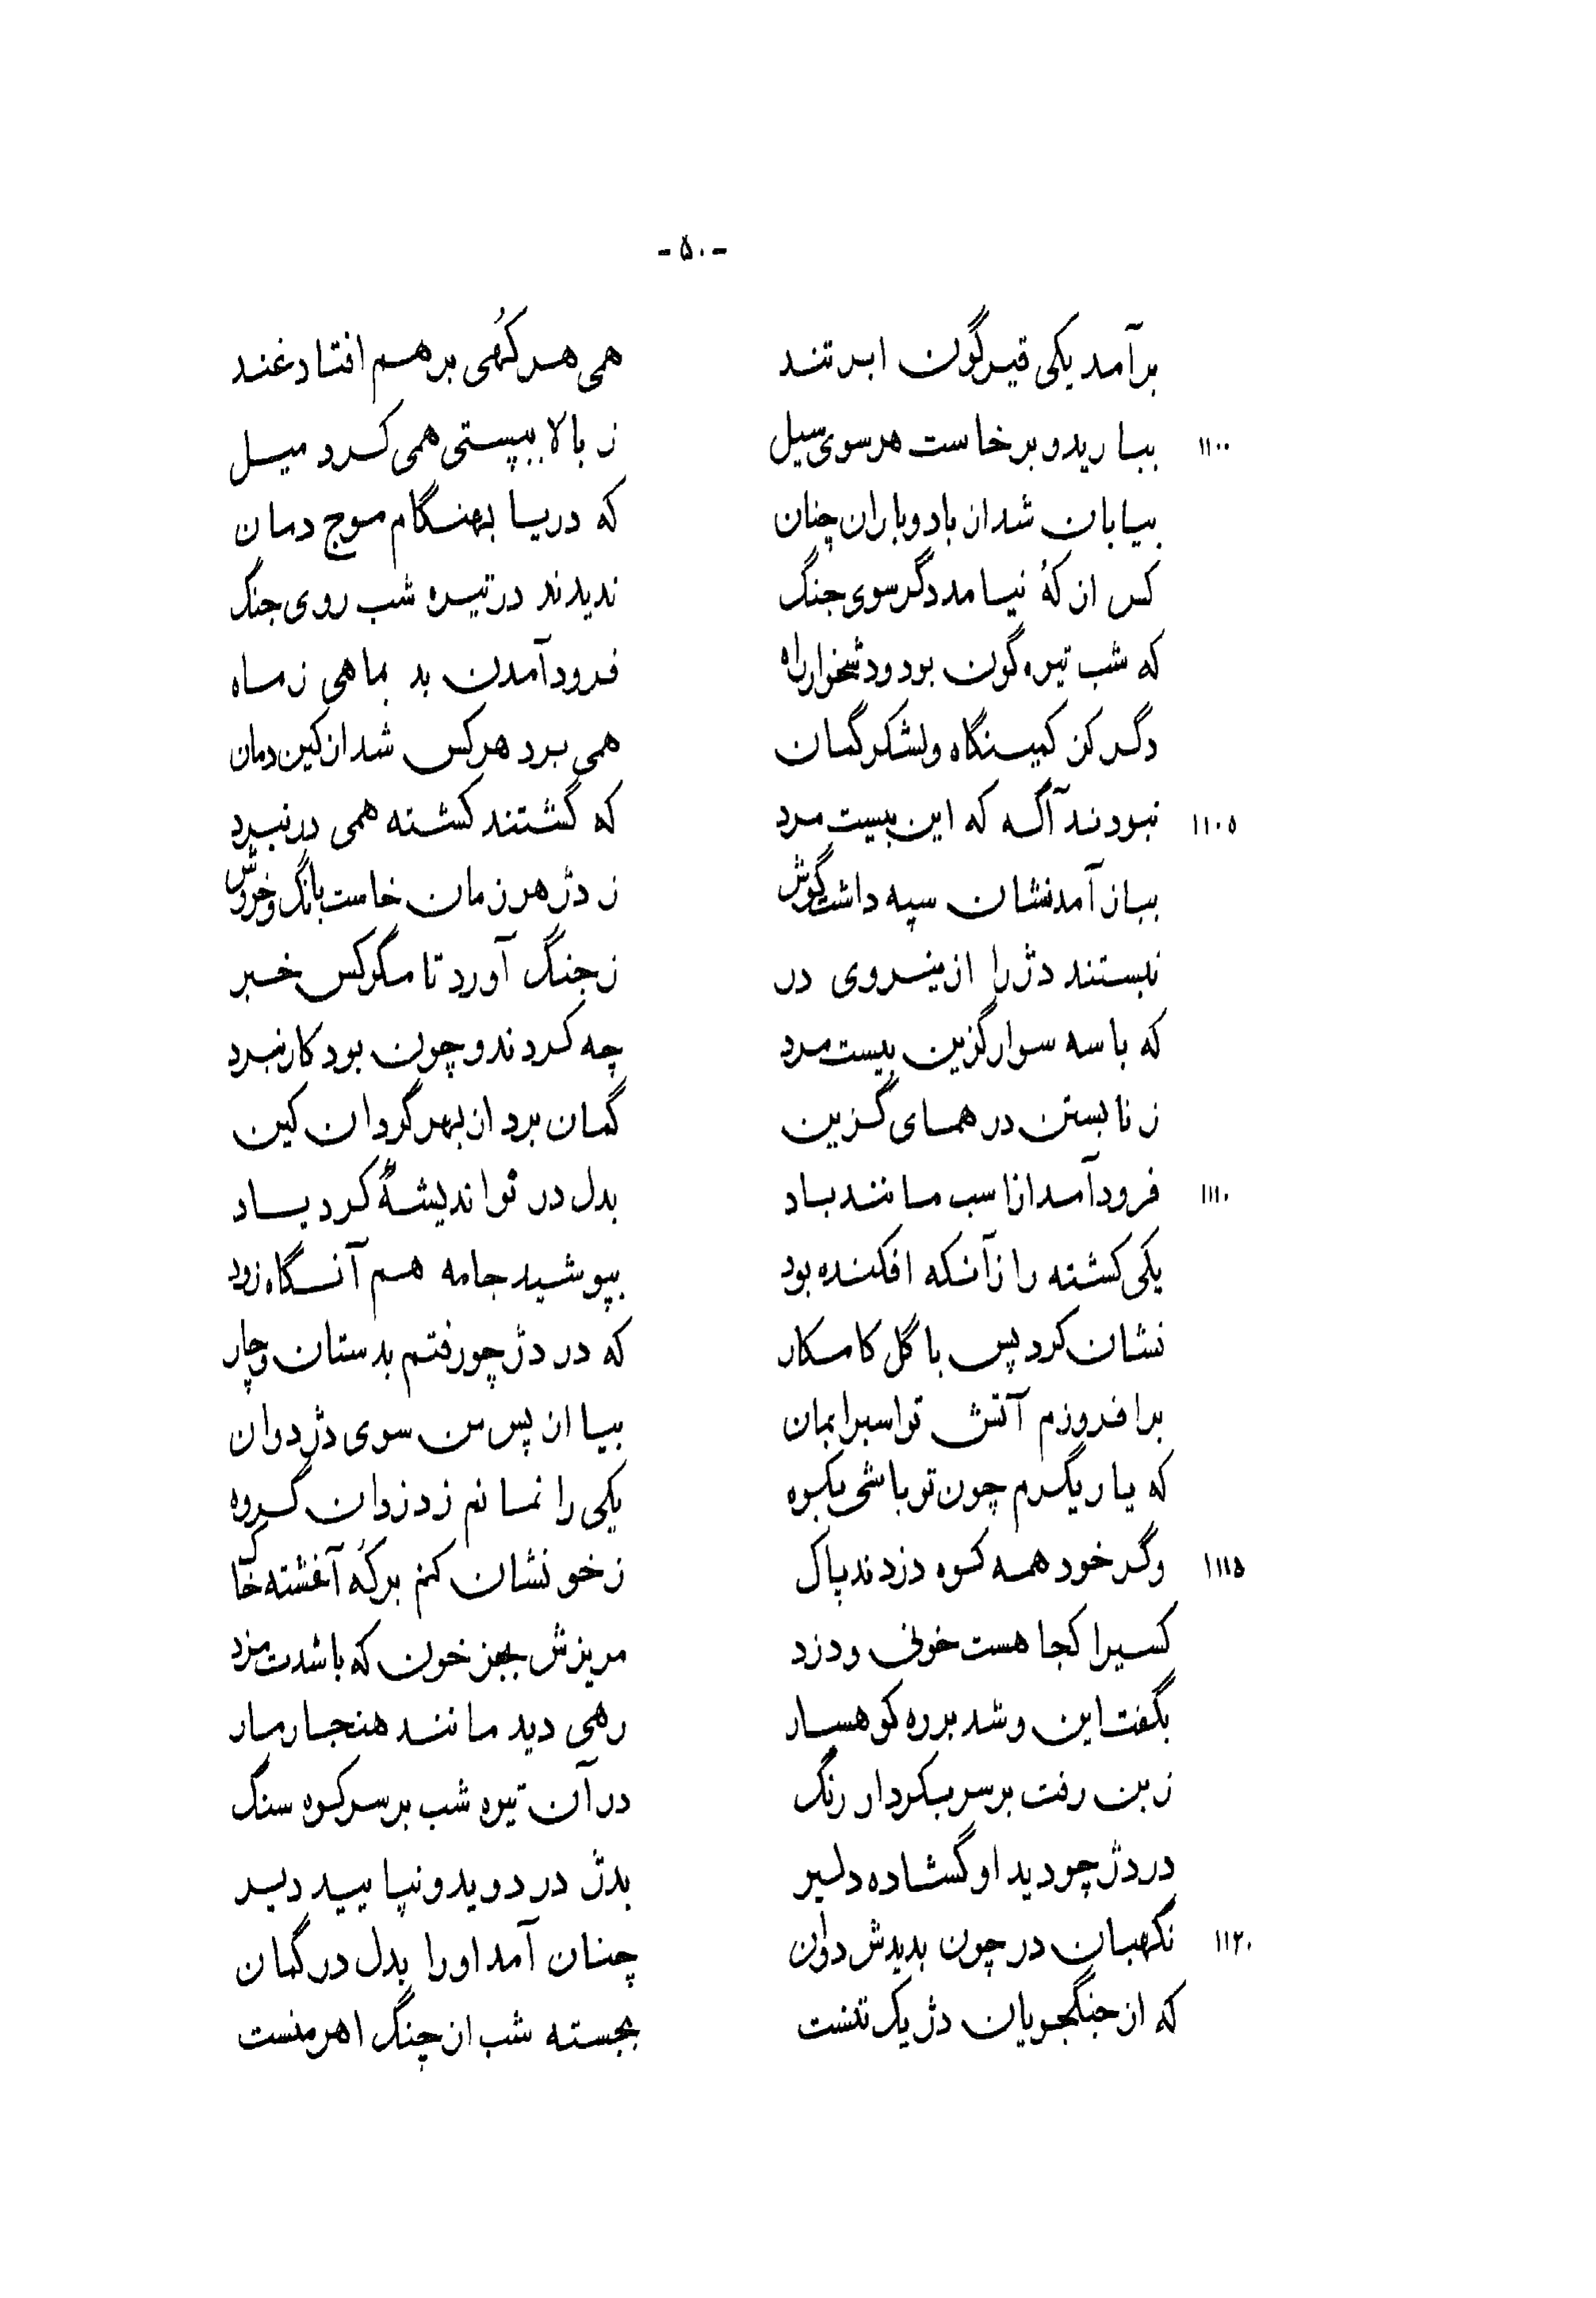 -۵۰-
برآمد یکی قیرگون ابر تند همی هر کُهی برهم افتاد غند
۱۱۰۰ ببارید و برخاست هر سوی سیل ز بالا ببپستی همی کرد میل
بیابان شد از باد و باران چنان که دریا بهنگام موج دمان
کس از کُه نیامد دگر سوی جنگ ندیدند در تیره شب روی جنگ
که شب تیره‌گون بود و دشخوار راه فرود آمدن بد بماهی ز ماه
دگر کز کمینگاه و لشکر گمان همی برد هرکس شد از کین دمان
۱۱۰۵ نبودند آگه که این بیست مرد که گشتند کشته همی در نبرد
بباز آمدنشان سپه داشت گوش ز دژ هر زمان خاست بانگ و خروش
نبستند دژ را از ینروی در ز جنگ آورد تا مگر کس خبر
که با سه سوار گزین بیست مرد چه کردند و چون بود کار نبرد
ز نابستن در همای گزین گمان برد از بهر گردان کین
۱۱۱۰ فرود آمد از اسب مانند باد بدل در نو اندیشهٔ کرد یاد
یکی کشته را زآنکه افکنده بود بپوشید جامه هم آنگاه زود
نشان کرد پس با گل کامکار که در دژ چو رفتم بدستان و چار
برافروزم آتش تو اسبر ابمان بیا از پس من سوی دژ دوان
که یار یگرم چون تو باشی بکوه یکی را نمانم ز دزدان گروه
۱۱۱۵ وگر خود همه کوه دزدند پاک ز خونشان کنم بر کُه آغشته خاک
کسیرا کجا هست خونی و دزد مریزش بجز خون که باشدت مزد
بگفت این و شد بر ره کوهسار رهی دید مانند هنجار مار
ز بن رفت بر سر بکردار رنگ در آن تیره شب بر سر کوه سنگ
در دژ چو دید او گشاده دلیر بدژ در دوید و نپایید دیر
۱۱۲۰ نگهبان در چون بدیدش دوان چنان آمد او را بدل در گمان
که از جنگجویان دژ یک تنست بجسته شب از چنگ اهرمنست